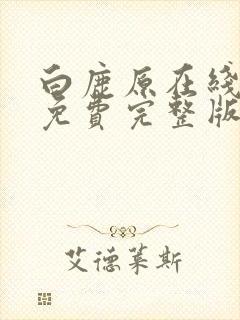 白鹿原在线
免費完整版
艾德莱斯